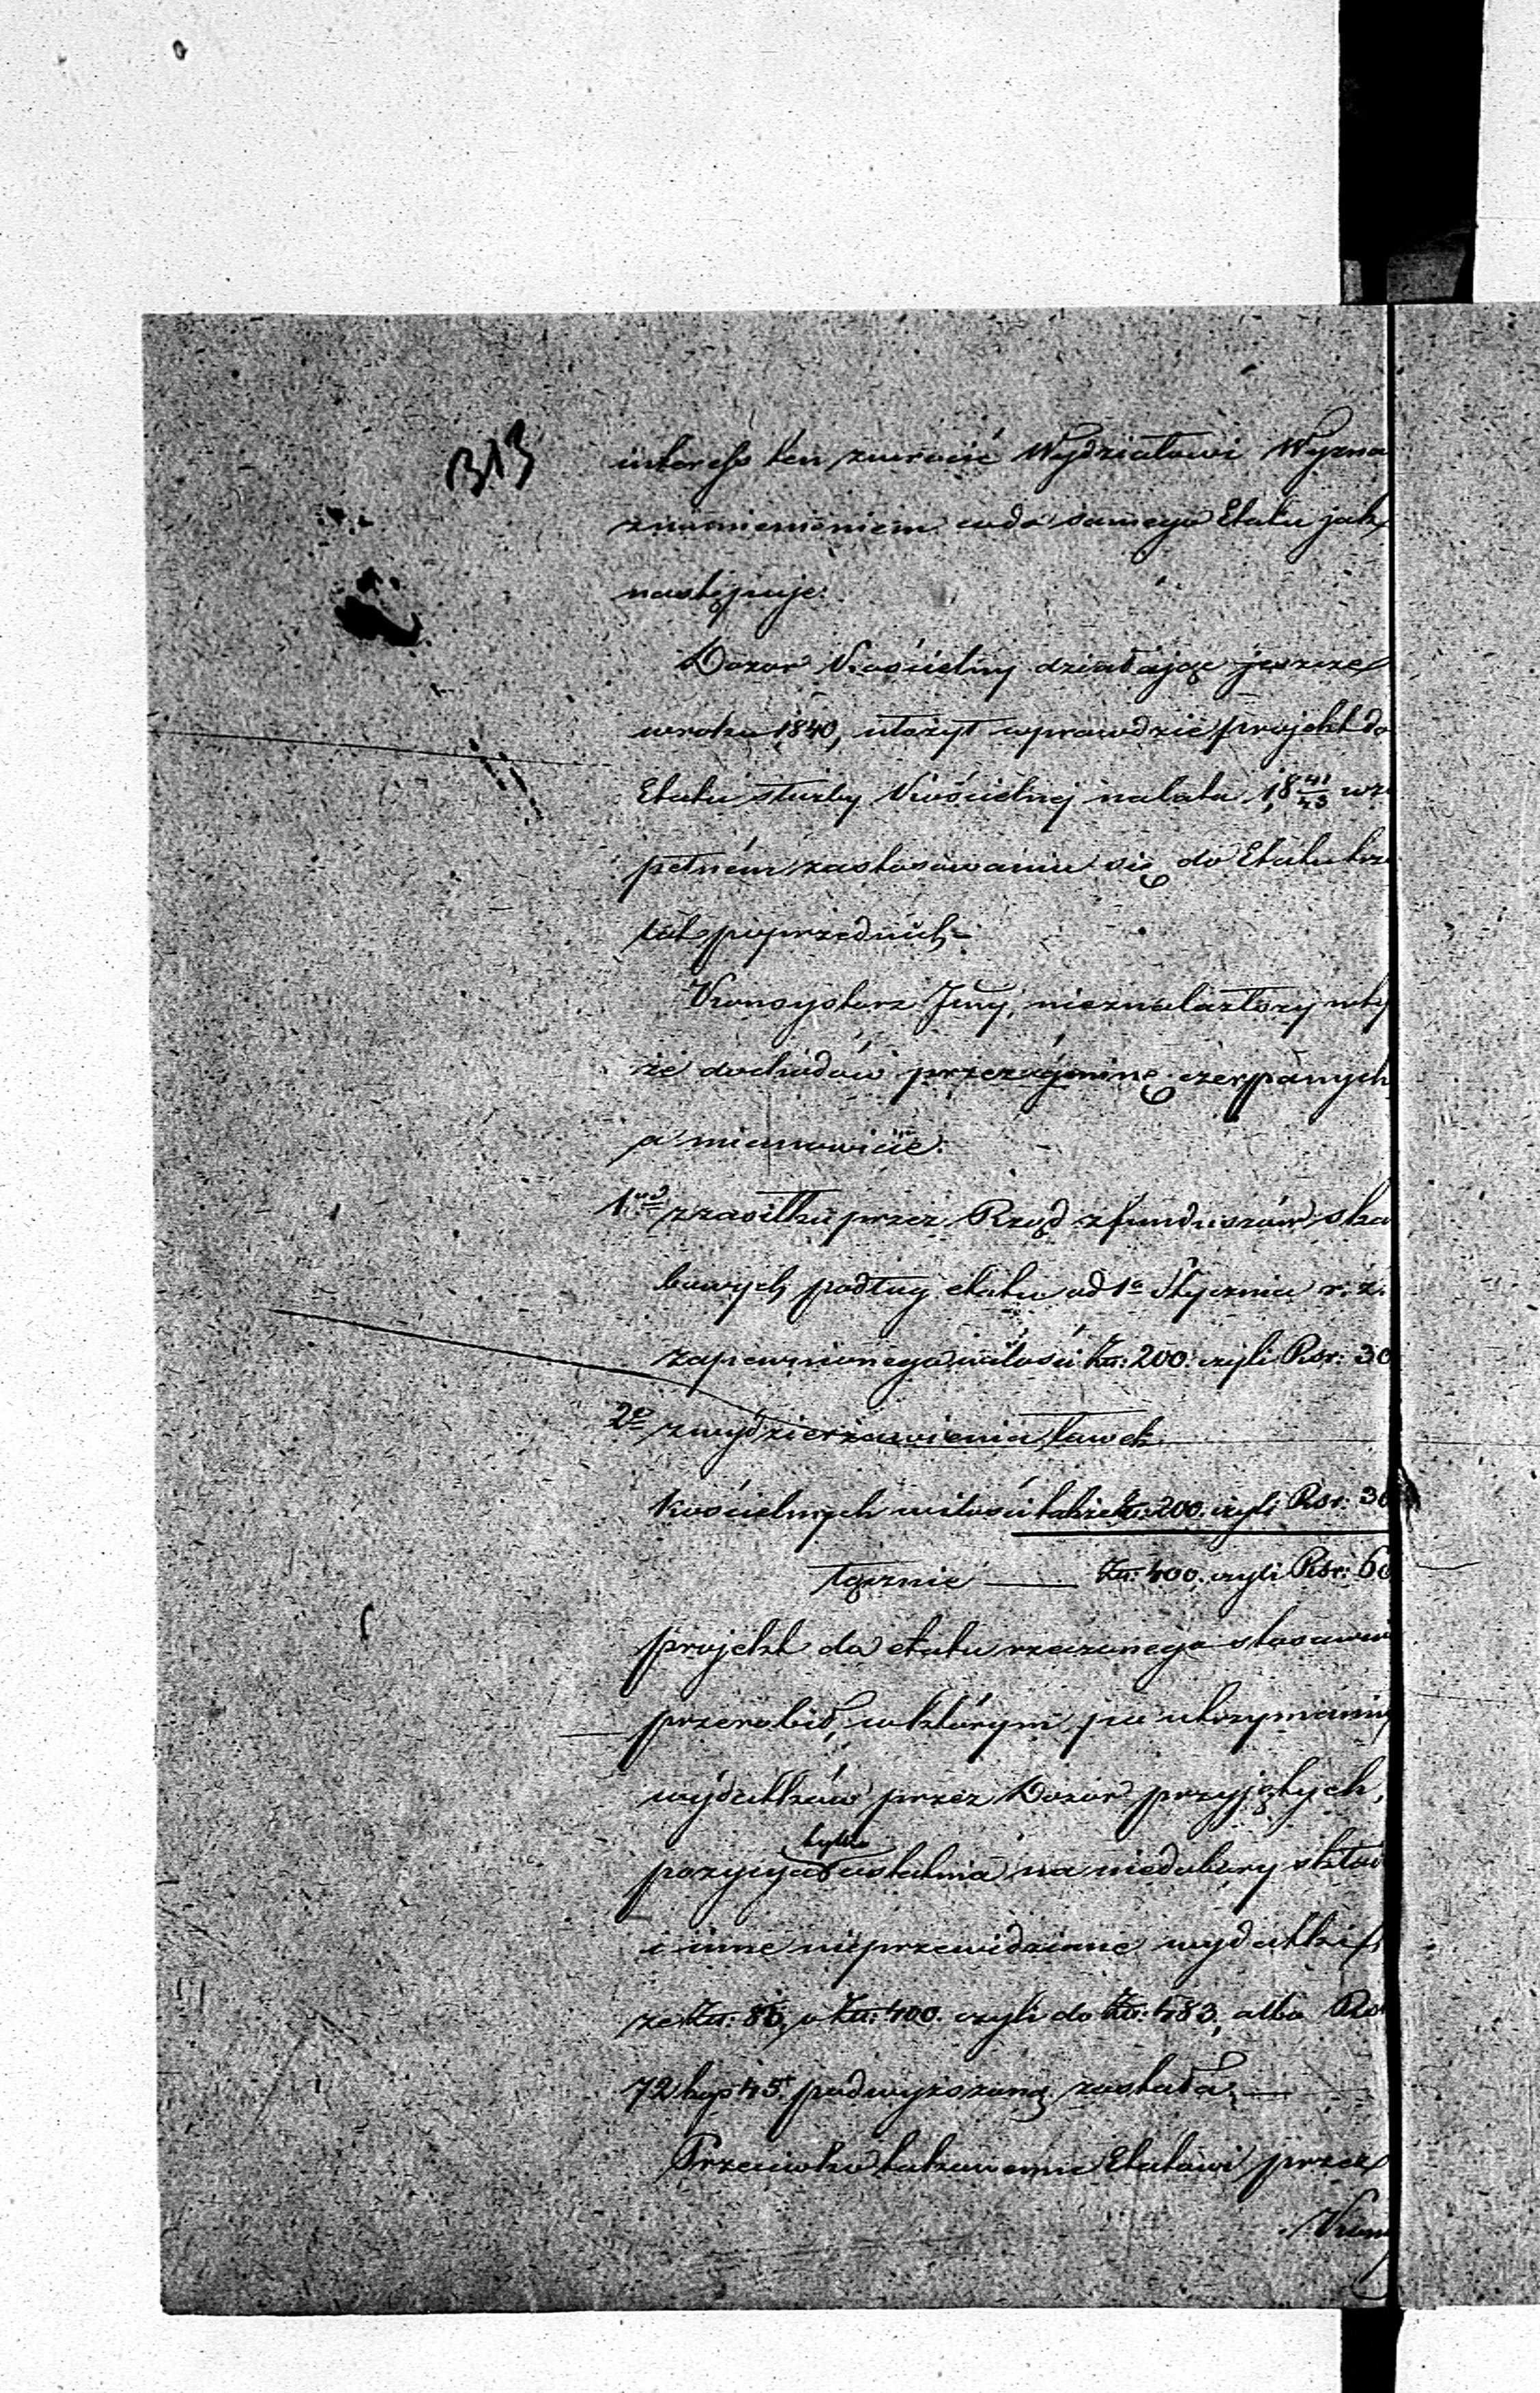 313
interess ten zwrócić Wydziałowi Wyzna
znamienieniem codo samego Etatu jak
następuje:
Dozór Kościelny działając jeszcze
wroku 1840, ułożył wprawdzie projekt do
Etatu służby Kościelnej nalata 18 41/43 wzu
pełném zastosowaniu się do Etatu trz
lat poprzednich.
Konsystorz Jlny, nieznalazłszy wty
że dochodów przezgminę czerpanych
a mianowicie:
1mo zzasiłku przez Rząd zfunduszów ska
bowych podług etatu od 1o Stycznia r. z.
zapewnionego wilości Złł: 200. czyli Rsr: 30
2o zwydzierżawienia ławek
Kościelnych wilości także Złł: 200. czyli Rsr: 30
łącznie — Złł: 400. czyli Rsr: 60
projekt do etatu rzeczonego stosown
przerobił, wktórym po utrzymaniu
wydatków przez Dozór przyjętych,
tylko
pozycya ostatnia na niedobory skład
i inne nieprzewidziane wydatki
ze Złł: 83, o Złł: 400. czyli do Złł: 483, albo Rsr
72 kop 45 podwyższoną została. —
Przeciwko takowemu Etatowi przez
Kon